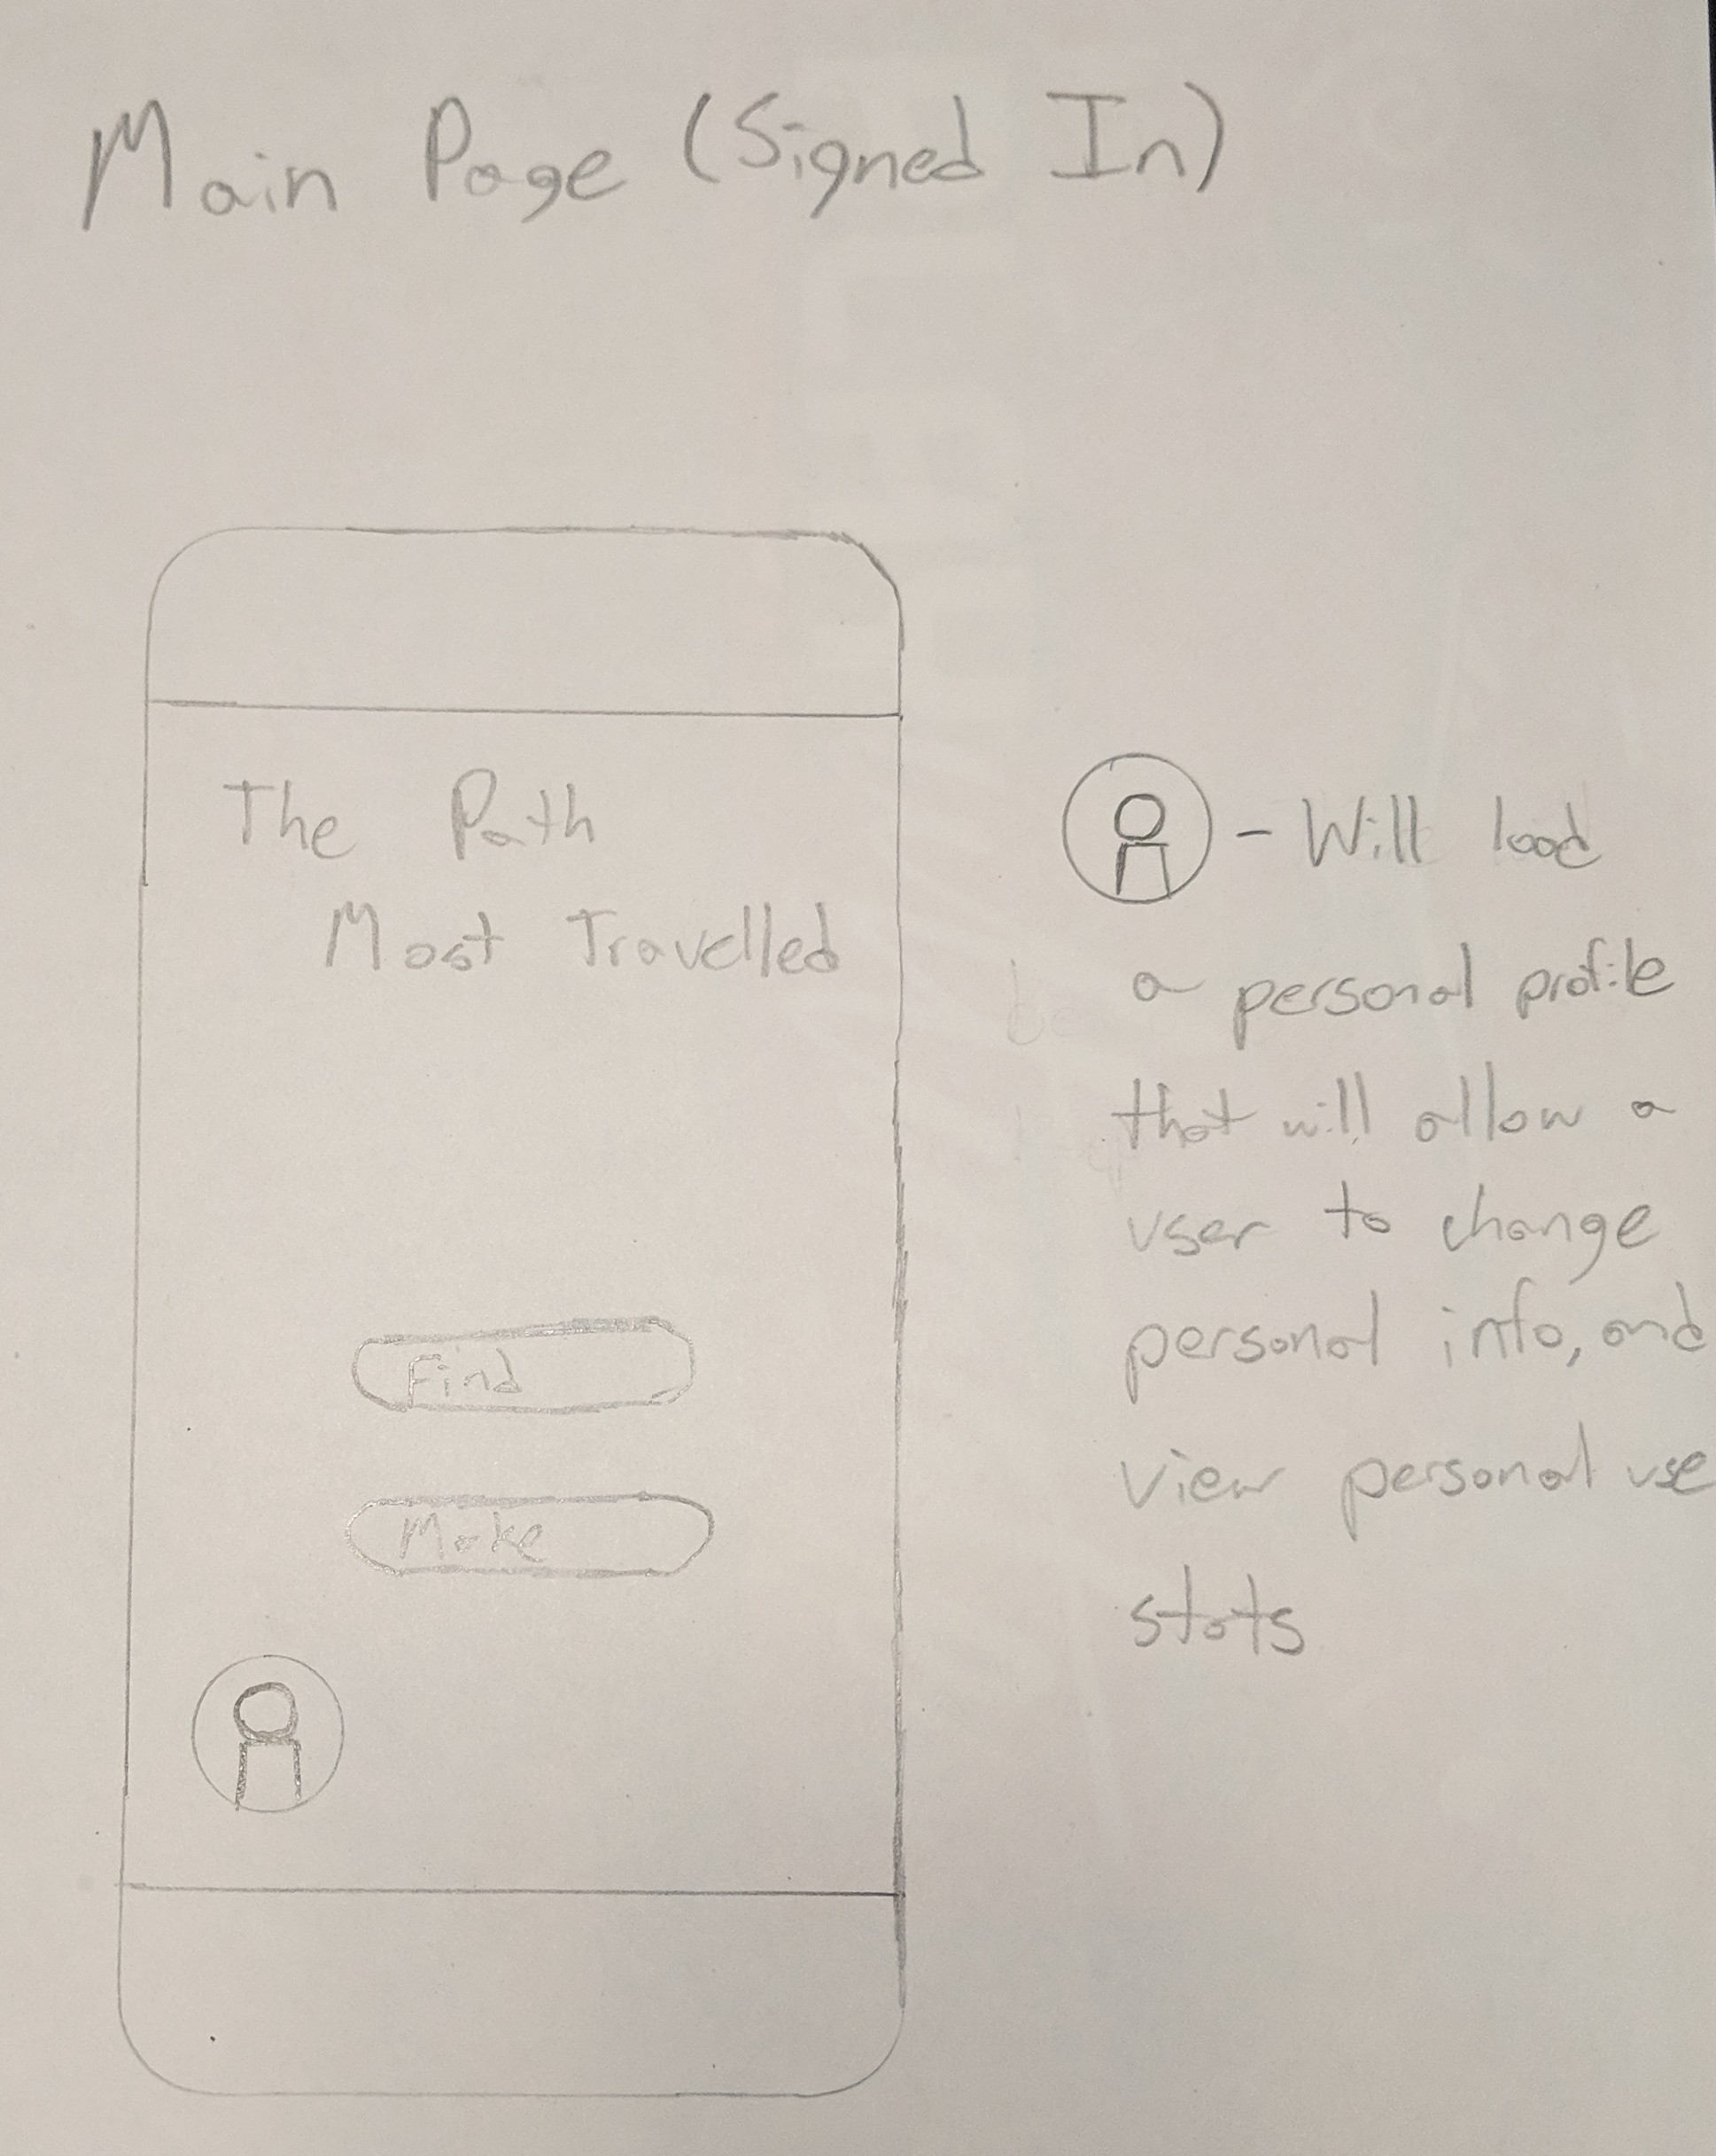 Main Page (Signed In)
The Path
Most Travelled
Find
Make
- Will load
a personal profile
that will allow a
user to change
personal info, and
view personal use
stats